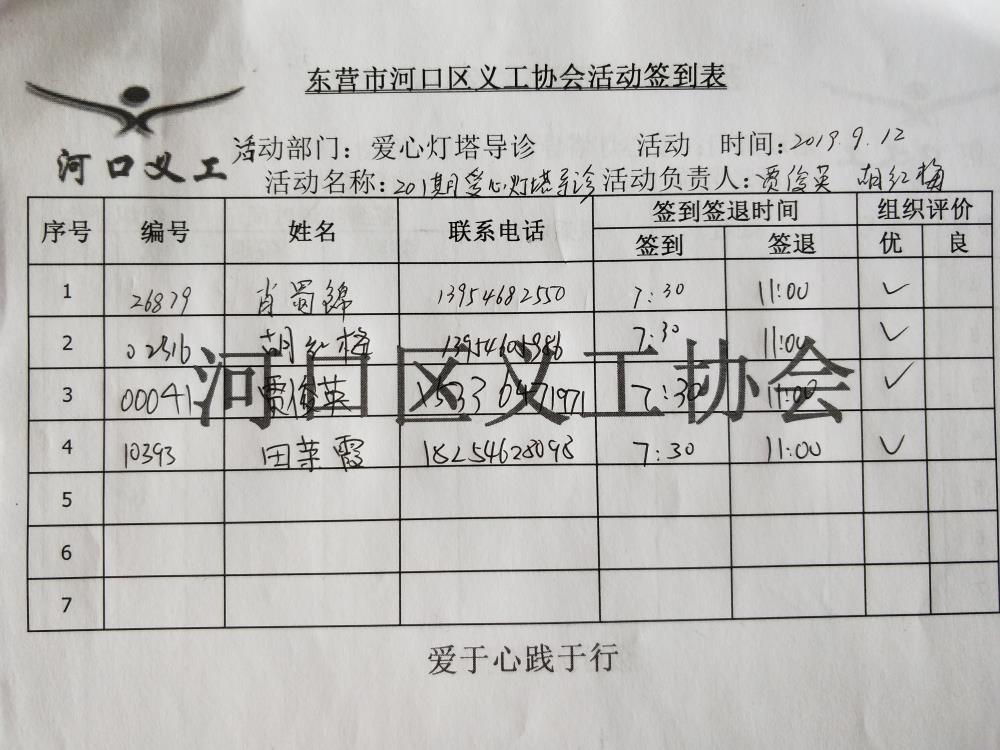 东营市河口区义工协会活动签到表
河口义工
活动部门：爱心灯塔导诊 活动 时间：2019.9.12
活动名称：201期爱心灯塔导诊 活动负责人：贾俊英 胡红梅
序号 编号 姓名 联系电话 签到签退时间 组织评价
签到 签退 优 良
1 26879 肖蜀锦 13954682550 7:30 11:00 ✓
2 02516 胡红梅 7:30 11:00 ✓
3 00041 贾俊英 15330471971 7:30 11:00 ✓
4 10393 田荣霞 18254628098 7:30 11:00 ✓
5
6
7
河口区义工协会
爱于心践于行